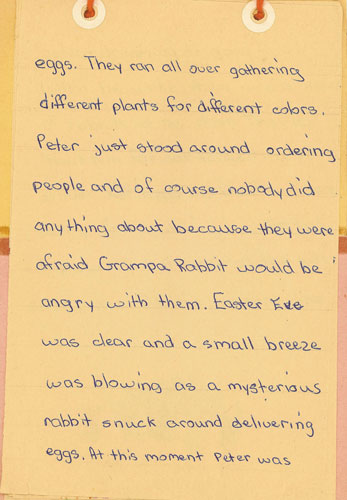 eggs. They ran all over gathering
different plants for different colors.
Peter just stood around ordering
people and of course nobody did
anything about because they were
afraid Grampa Rabbit would be
angry with them. Easter Eve
was clear and a small breeze
was blowing as a mysterious
rabbit snuck around delivering
eggs. At this moment Peter was